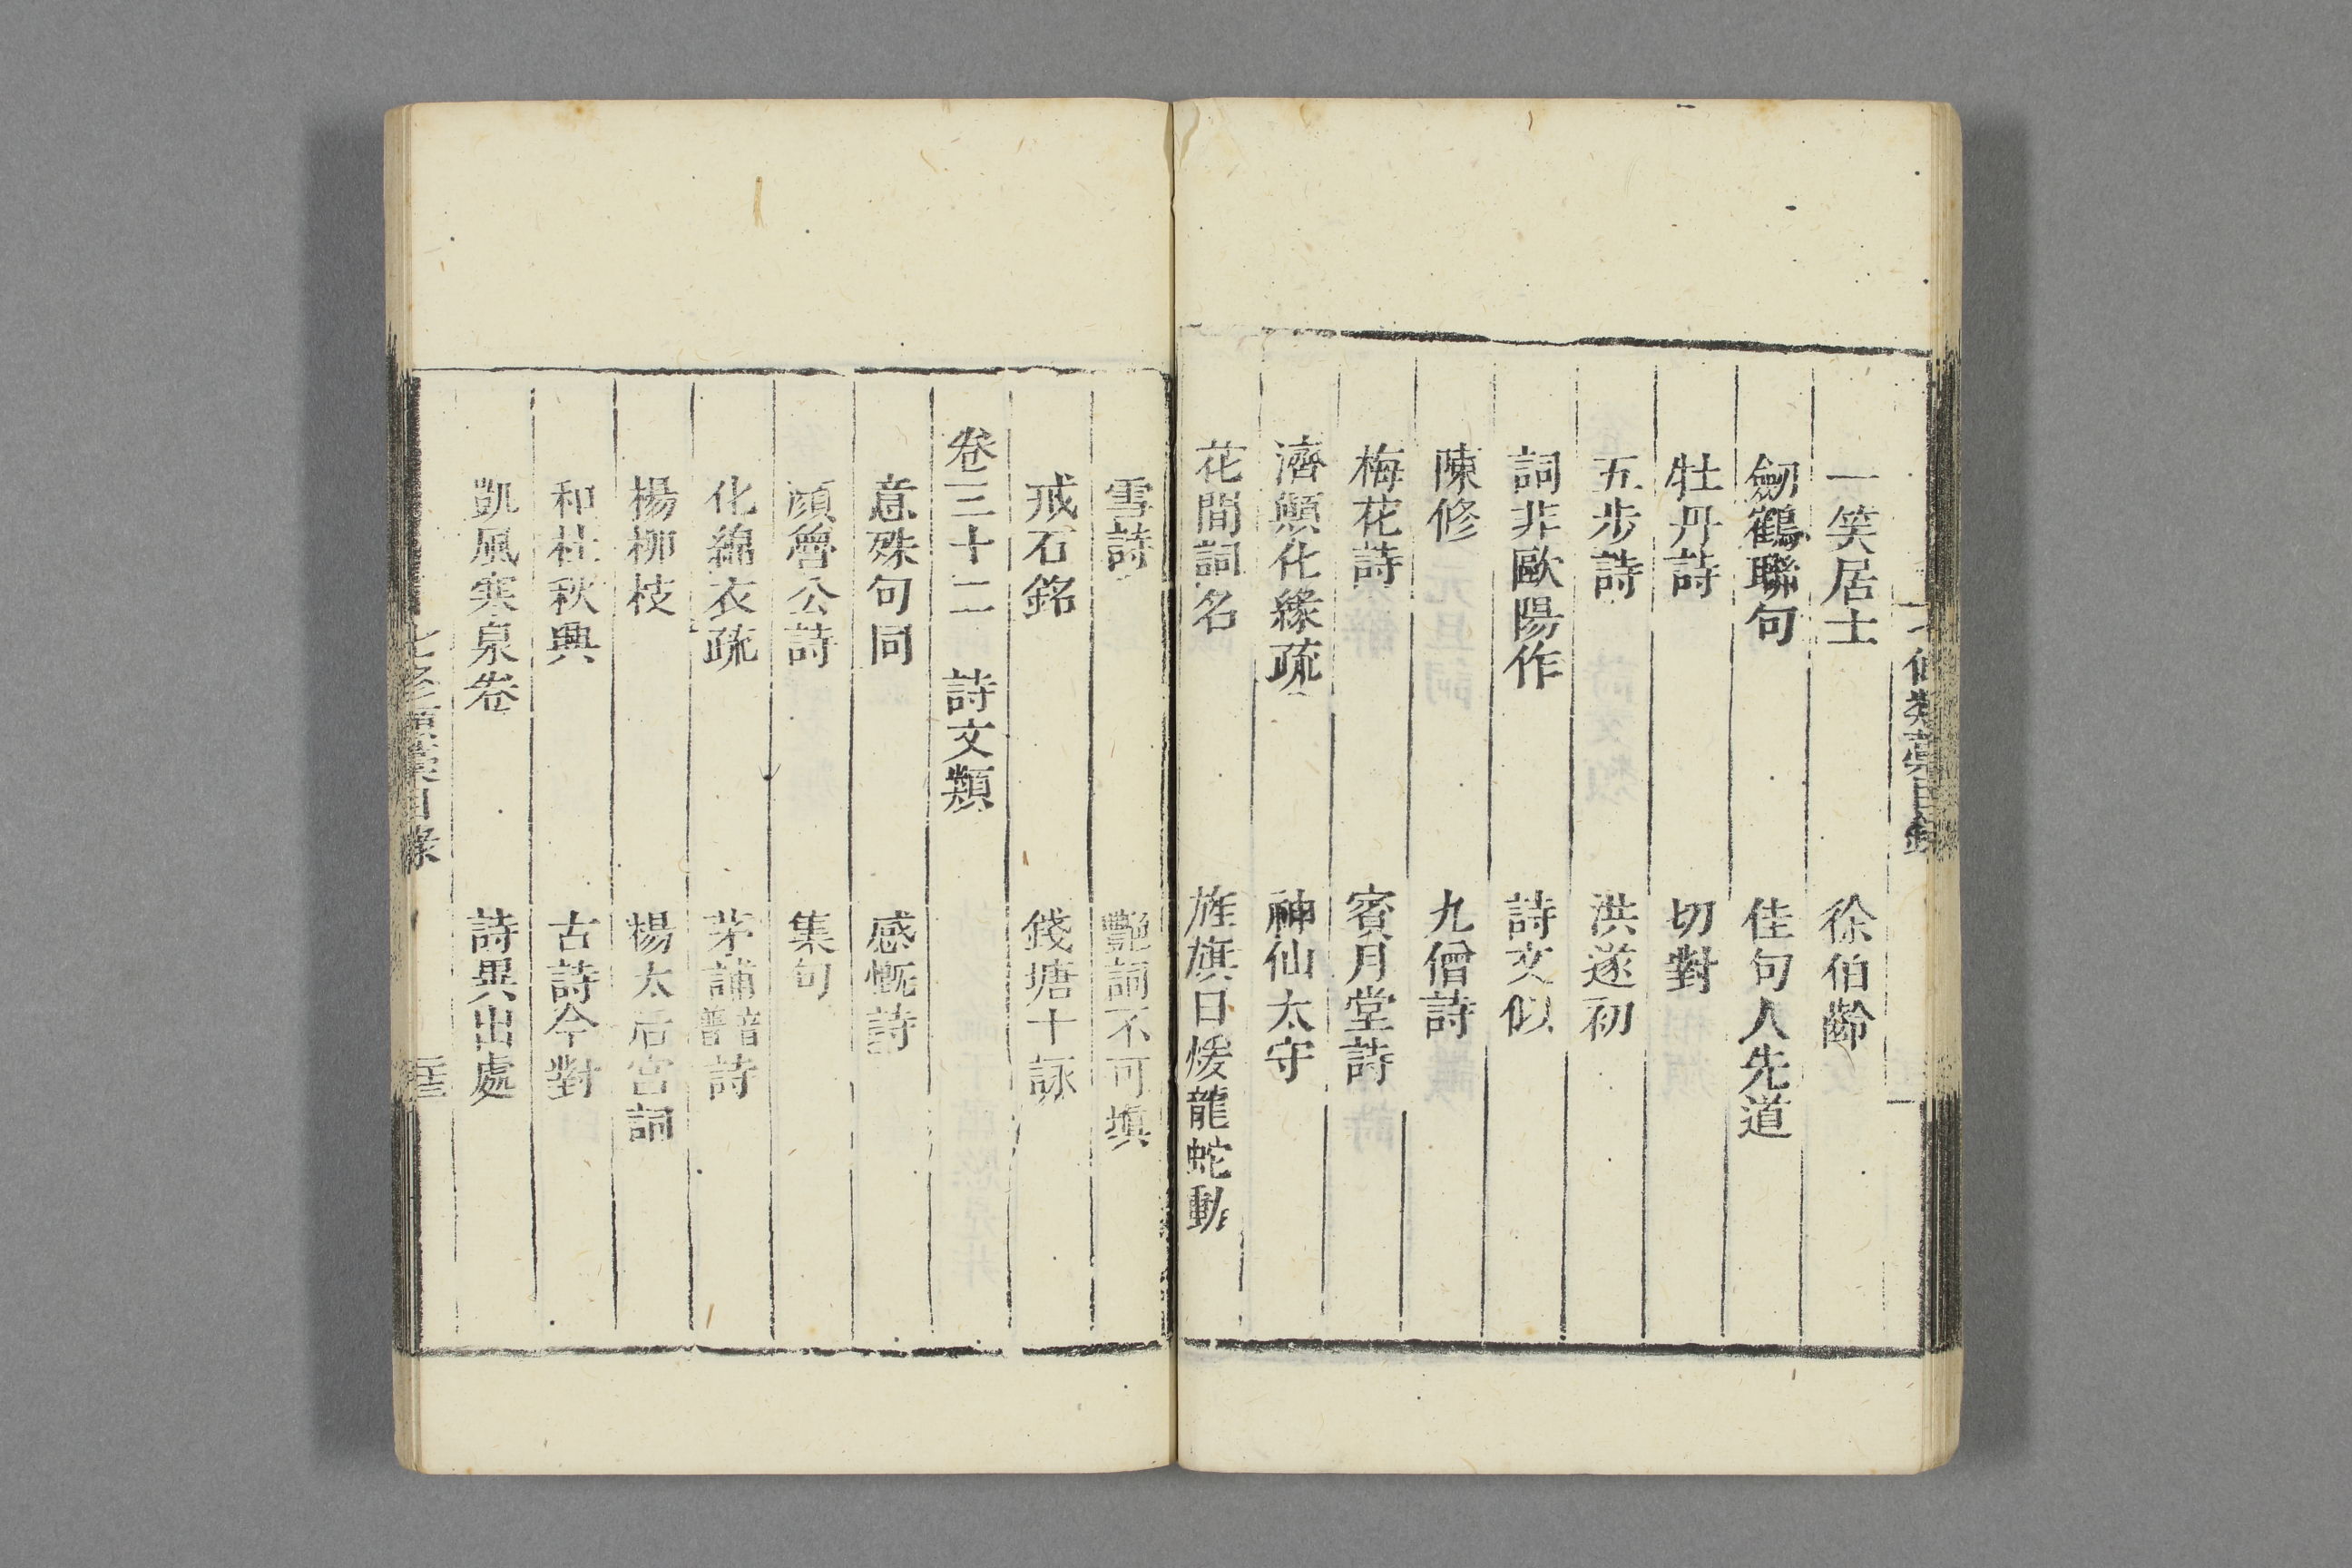 一笑居士 徐伯齡
劒鶴聯句 佳句人先道
牡丹詩 切對
五步詩 洪遂初
詞非歐陽作 詩文似
陳修 九僧詩
梅花詩 賓月堂詩
濟顛化緣疏 神仙太守
花間詞名 旌旗日煖龍蛇動
雪詩 艷詞不可填
戒石銘 錢塘十詠
卷三十二 詩文類
意殊句同 感慨詩
顏魯公詩 集句
化綿衣疏 茅誧音普詩
楊柳枝 楊太后宮詞
和杜秋興 古詩今對
凱風寒泉卷 詩異出處
七修類藁目錄